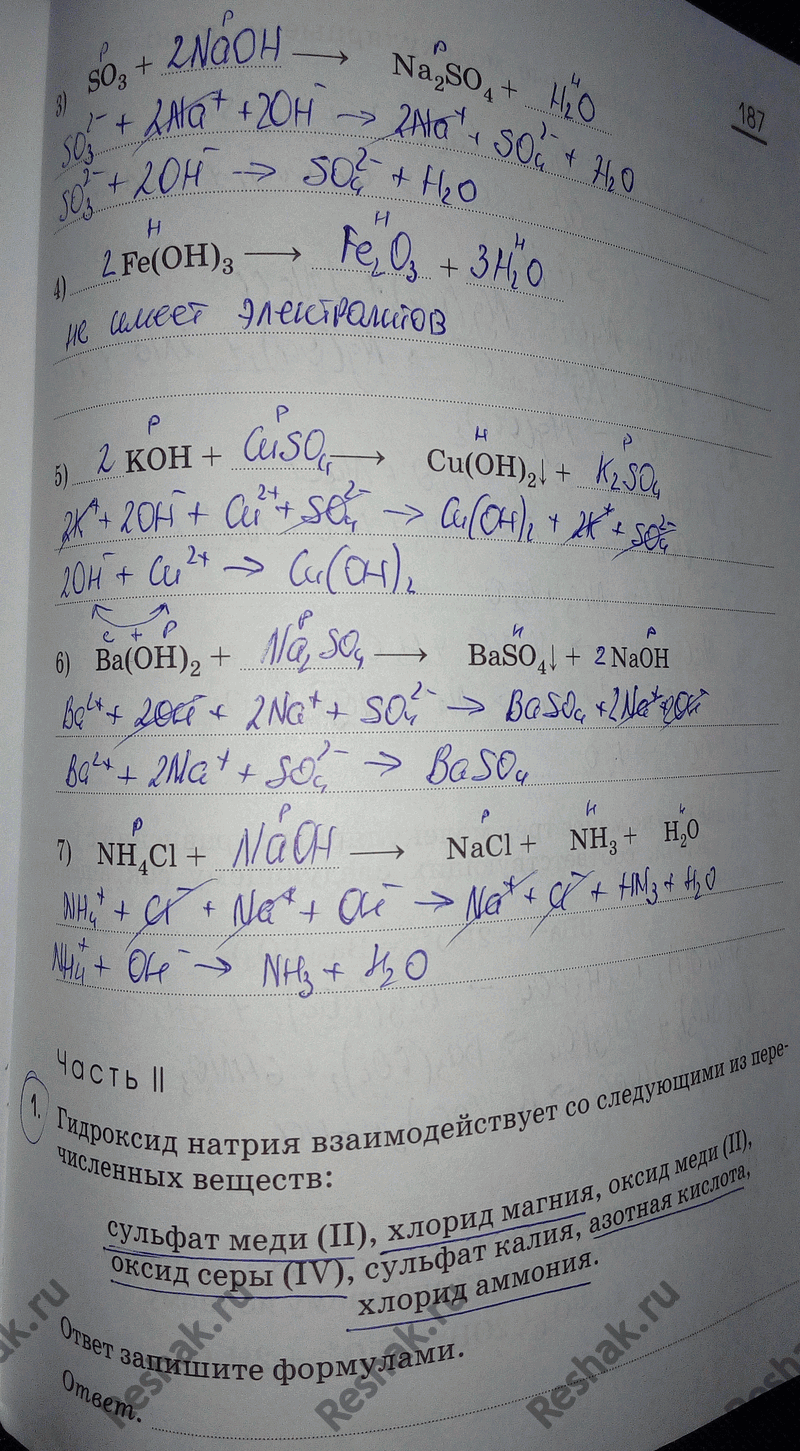 187
р р р н
3) SO₃ + 2NaOH ⟶ Na₂SO₄ + H₂O
SO₃²⁻ + 2Na⁺ + 2OH⁻ → 2Na⁺ + SO₄²⁻ + H₂O
SO₃²⁻ + 2OH⁻ → SO₄²⁻ + H₂O
н н н
4) 2Fe(OH)₃ ⟶ Fe₂O₃ + 3H₂O
не имеет электралитов
р р н р
5) 2 KOH + CuSO₄ ⟶ Cu(OH)₂↓ + K₂SO₄
2K⁺ + 2OH⁻ + Cu²⁺ + SO₄²⁻ → Cu(OH)₂ + 2K⁺ + SO₄²⁻
2OH⁻ + Cu²⁺ → Cu(OH)₂
с + р р н р
6) Ba(OH)₂ + Na₂SO₄ ⟶ BaSO₄↓ + 2 NaOH
Ba²⁺ + 2OH⁻ + 2Na⁺ + SO₄²⁻ → BaSO₄ + 2Na⁺ 2OH⁻
Ba²⁺ + 2Na⁺ + SO₄²⁻ → BaSO₄
р р р н н
7) NH₄Cl + NaOH ⟶ NaCl + NH₃ + H₂O
NH₄⁺ + Cl⁻ + Na⁺ + OH⁻ → Na⁺ + Cl⁻ + HN₃ + H₂O
NH₄⁺ + OH⁻ → NH₃ + H₂O
Часть II
1. Гидроксид натрия взаимодействует со следующими из пере-
численных веществ:
сульфат меди (II), хлорид магния, оксид меди (II),
оксид серы (IV), сульфат калия, азотная кислота,
хлорид аммония.
Ответ запишите формулами.
Ответ.
Reshak.ru Reshak.ru Reshak.ru Reshak.ru